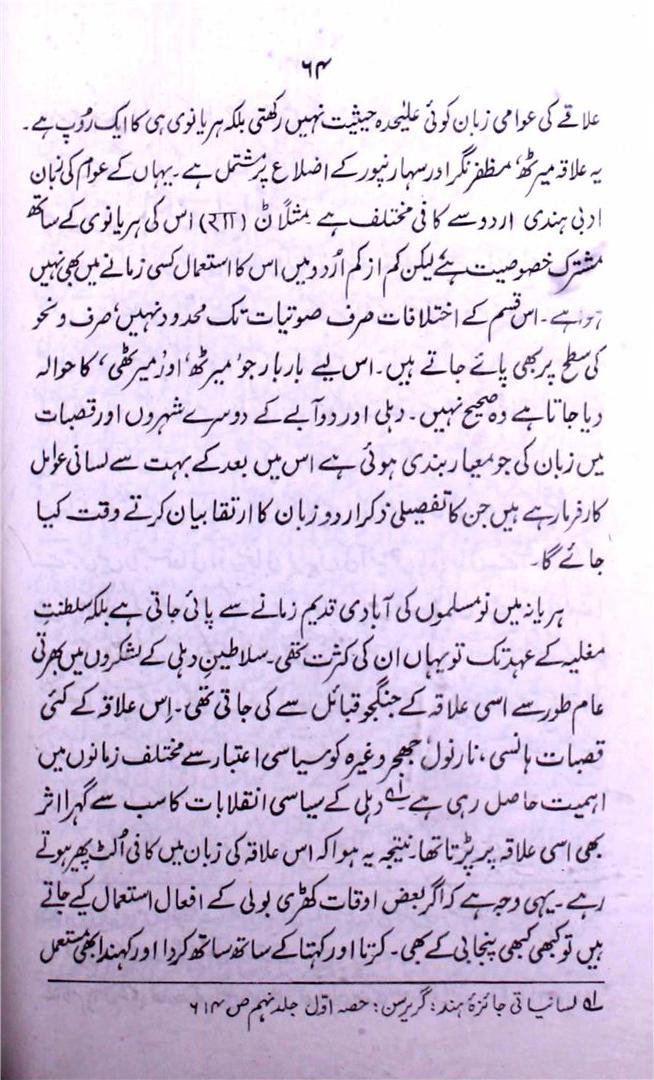 ۶۴
علاقے کی عوامی زبان کوئی علیٰحدہ حیثیت نہیں رکھتی بلکہ ہریانوی ہی کا ایک رُوپ ہے۔
یہ علاقہ میرٹھ، مظفر نگر اور سہارنپور کے اضلاع پر مشتمل ہے۔ یہاں کے عوام کی زبان
ادبی ہندی اردو سے کافی مختلف ہے مثلاً ن (रणा) اس کی ہریانوی کے ساتھ
مشترک خصوصیت ہے لیکن کم از کم اُردو میں اس کا استعمال کسی زمانے میں بھی نہیں
ہوا ہے۔ اس قسم کے اختلافات صرف صوتیات تک محدود نہیں، صرف و نحو
کی سطح پر بھی پائے جاتے ہیں۔ اس لیے بار بار جو ’میرٹھ‘ اور ’میرٹھی‘ کا حوالہ
دیا جاتا ہے وہ صحیح نہیں۔ دہلی اور دوآبے کے دوسرے شہروں اور قصبات
میں زبان کی جو معیار بندی ہوئی ہے اس میں بعد کے بہت سے لسانی عوامل
کارفرما رہے ہیں جن کا تفصیلی ذکر اردو زبان کا ارتقا بیان کرتے وقت کیا
جائے گا۔
ہریانہ میں نو مسلموں کی آبادی قدیم زمانے سے پائی جاتی ہے بلکہ سلطنتِ
مغلیہ کے عہد تک تو یہاں ان کی کثرت تھی۔ سلاطینِ دہلی کے لشکروں میں بھرتی
عام طور سے اسی علاقہ کے جنگجو قبائل سے کی جاتی تھی۔ اِس علاقہ کے کئی
قصبات ہانسی، نارنول، جھجر وغیرہ کو سیاسی اعتبار سے مختلف زمانوں میں
اہمیت حاصل رہی ہے لہ دہلی کے سیاسی انقلابات کا سب سے گہرا اثر
بھی اسی علاقہ پر پڑتا تھا۔ نتیجہ یہ ہوا کہ اس علاقہ کی زبان میں کافی اُلٹ پھیر ہوتے
رہے۔ یہی وجہ ہے کہ اگر بعض اوقات کھڑی بولی کے افعال استعمال کیے جاتے
ہیں تو کبھی کبھی پنجابی کے بھی۔ کرنا اور کہنا کے ساتھ ساتھ کردا اور کہندا بھی مستعمل
لہ لسانیاتی جائزۂ ہند: گریرسن: حصہ اوّل جلد نہم ص ۶۱۴